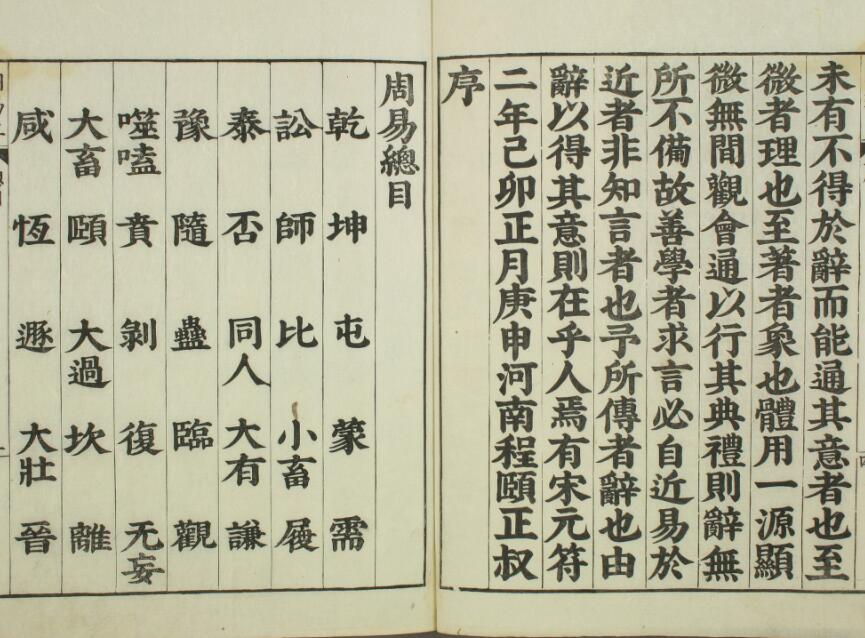 未有不得於辭而能通其意者也至
微者理也至著者象也體用一源顯
微無間觀會通以行其典禮則辭無
所不備故善學者求言必自近易於
近者非知言者也予所傳者辭也由
辭以得其意則在乎人焉有宋元符
二年己卯正月庚申河南程頤正叔
序
周易總目
乾 坤 屯 蒙 需
訟 師 比 小畜 履
泰 否 同人 大有 謙
豫 隨 蠱 臨 觀
噬嗑 賁 剝 復 无妄
大畜 頤 大過 坎 離
咸 恆 遯 大壯 晉